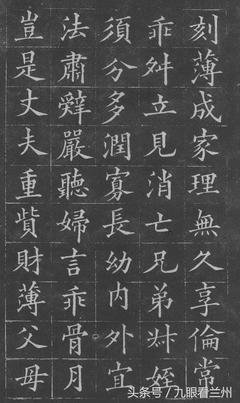 刻薄成家理無久享倫常
乖舛立見消亡兄弟叔姪
須分多潤寡長幼内外宜
法肅辭嚴聽婦言乖骨月
豈是丈夫重貲財薄父母
头条号 / 九眼看兰州